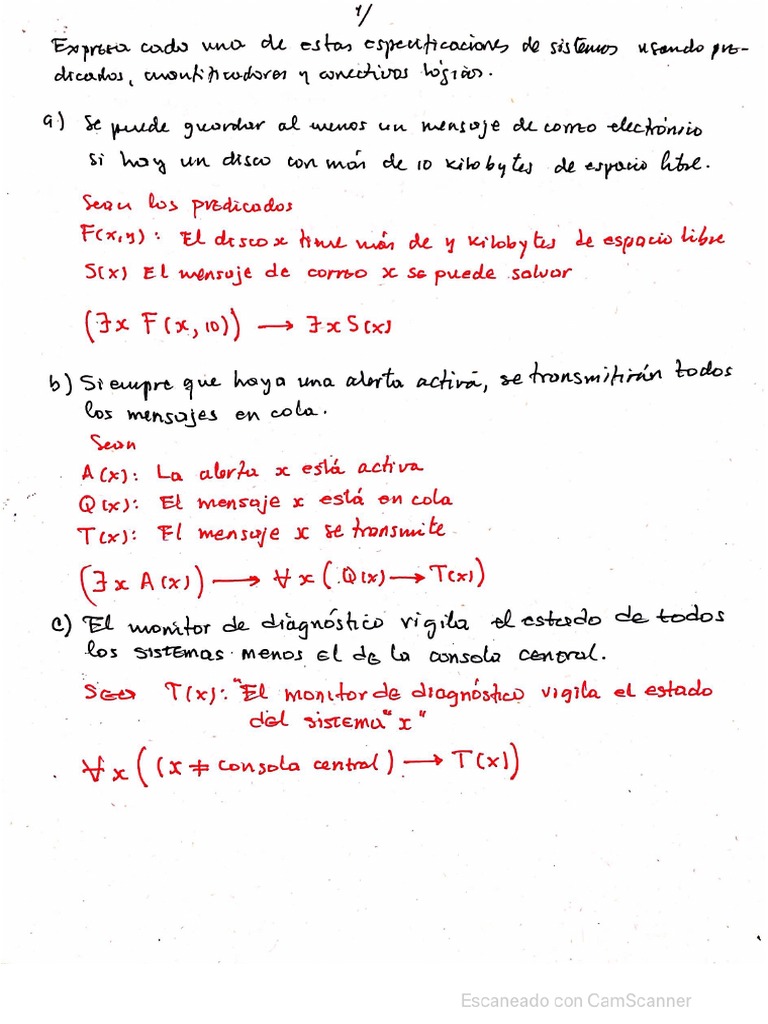 1/
Expresa cada una de estas especificaciones de sistemas usando pre-
dicados, cuantificadores y conectivos lógicos.
a) Se puede guardar al menos un mensaje de correo electrónico
si hay un disco con más de 10 kilobytes de espacio libre.
Sean los predicados
F(x,y): El disco x tiene más de y kilobytes de espacio libre
S(x) El mensaje de correo x se puede salvar
(∃x F(x,10)) → ∃x S(x)
b) Siempre que haya una alerta activa, se transmitirán todos
los mensajes en cola.
Sean
A(x): La alerta x está activa
Q(x): El mensaje x está en cola
T(x): El mensaje x se transmite
(∃x A(x)) → ∀x (Q(x) → T(x))
c) El monitor de diagnóstico vigila el estado de todos
los sistemas menos el de la consola central.
Sea T(x): "El monitor de diagnóstico vigila el estado
del sistema "x"
∀x ((x ≠ consola central) → T(x))
Escaneado con CamScanner